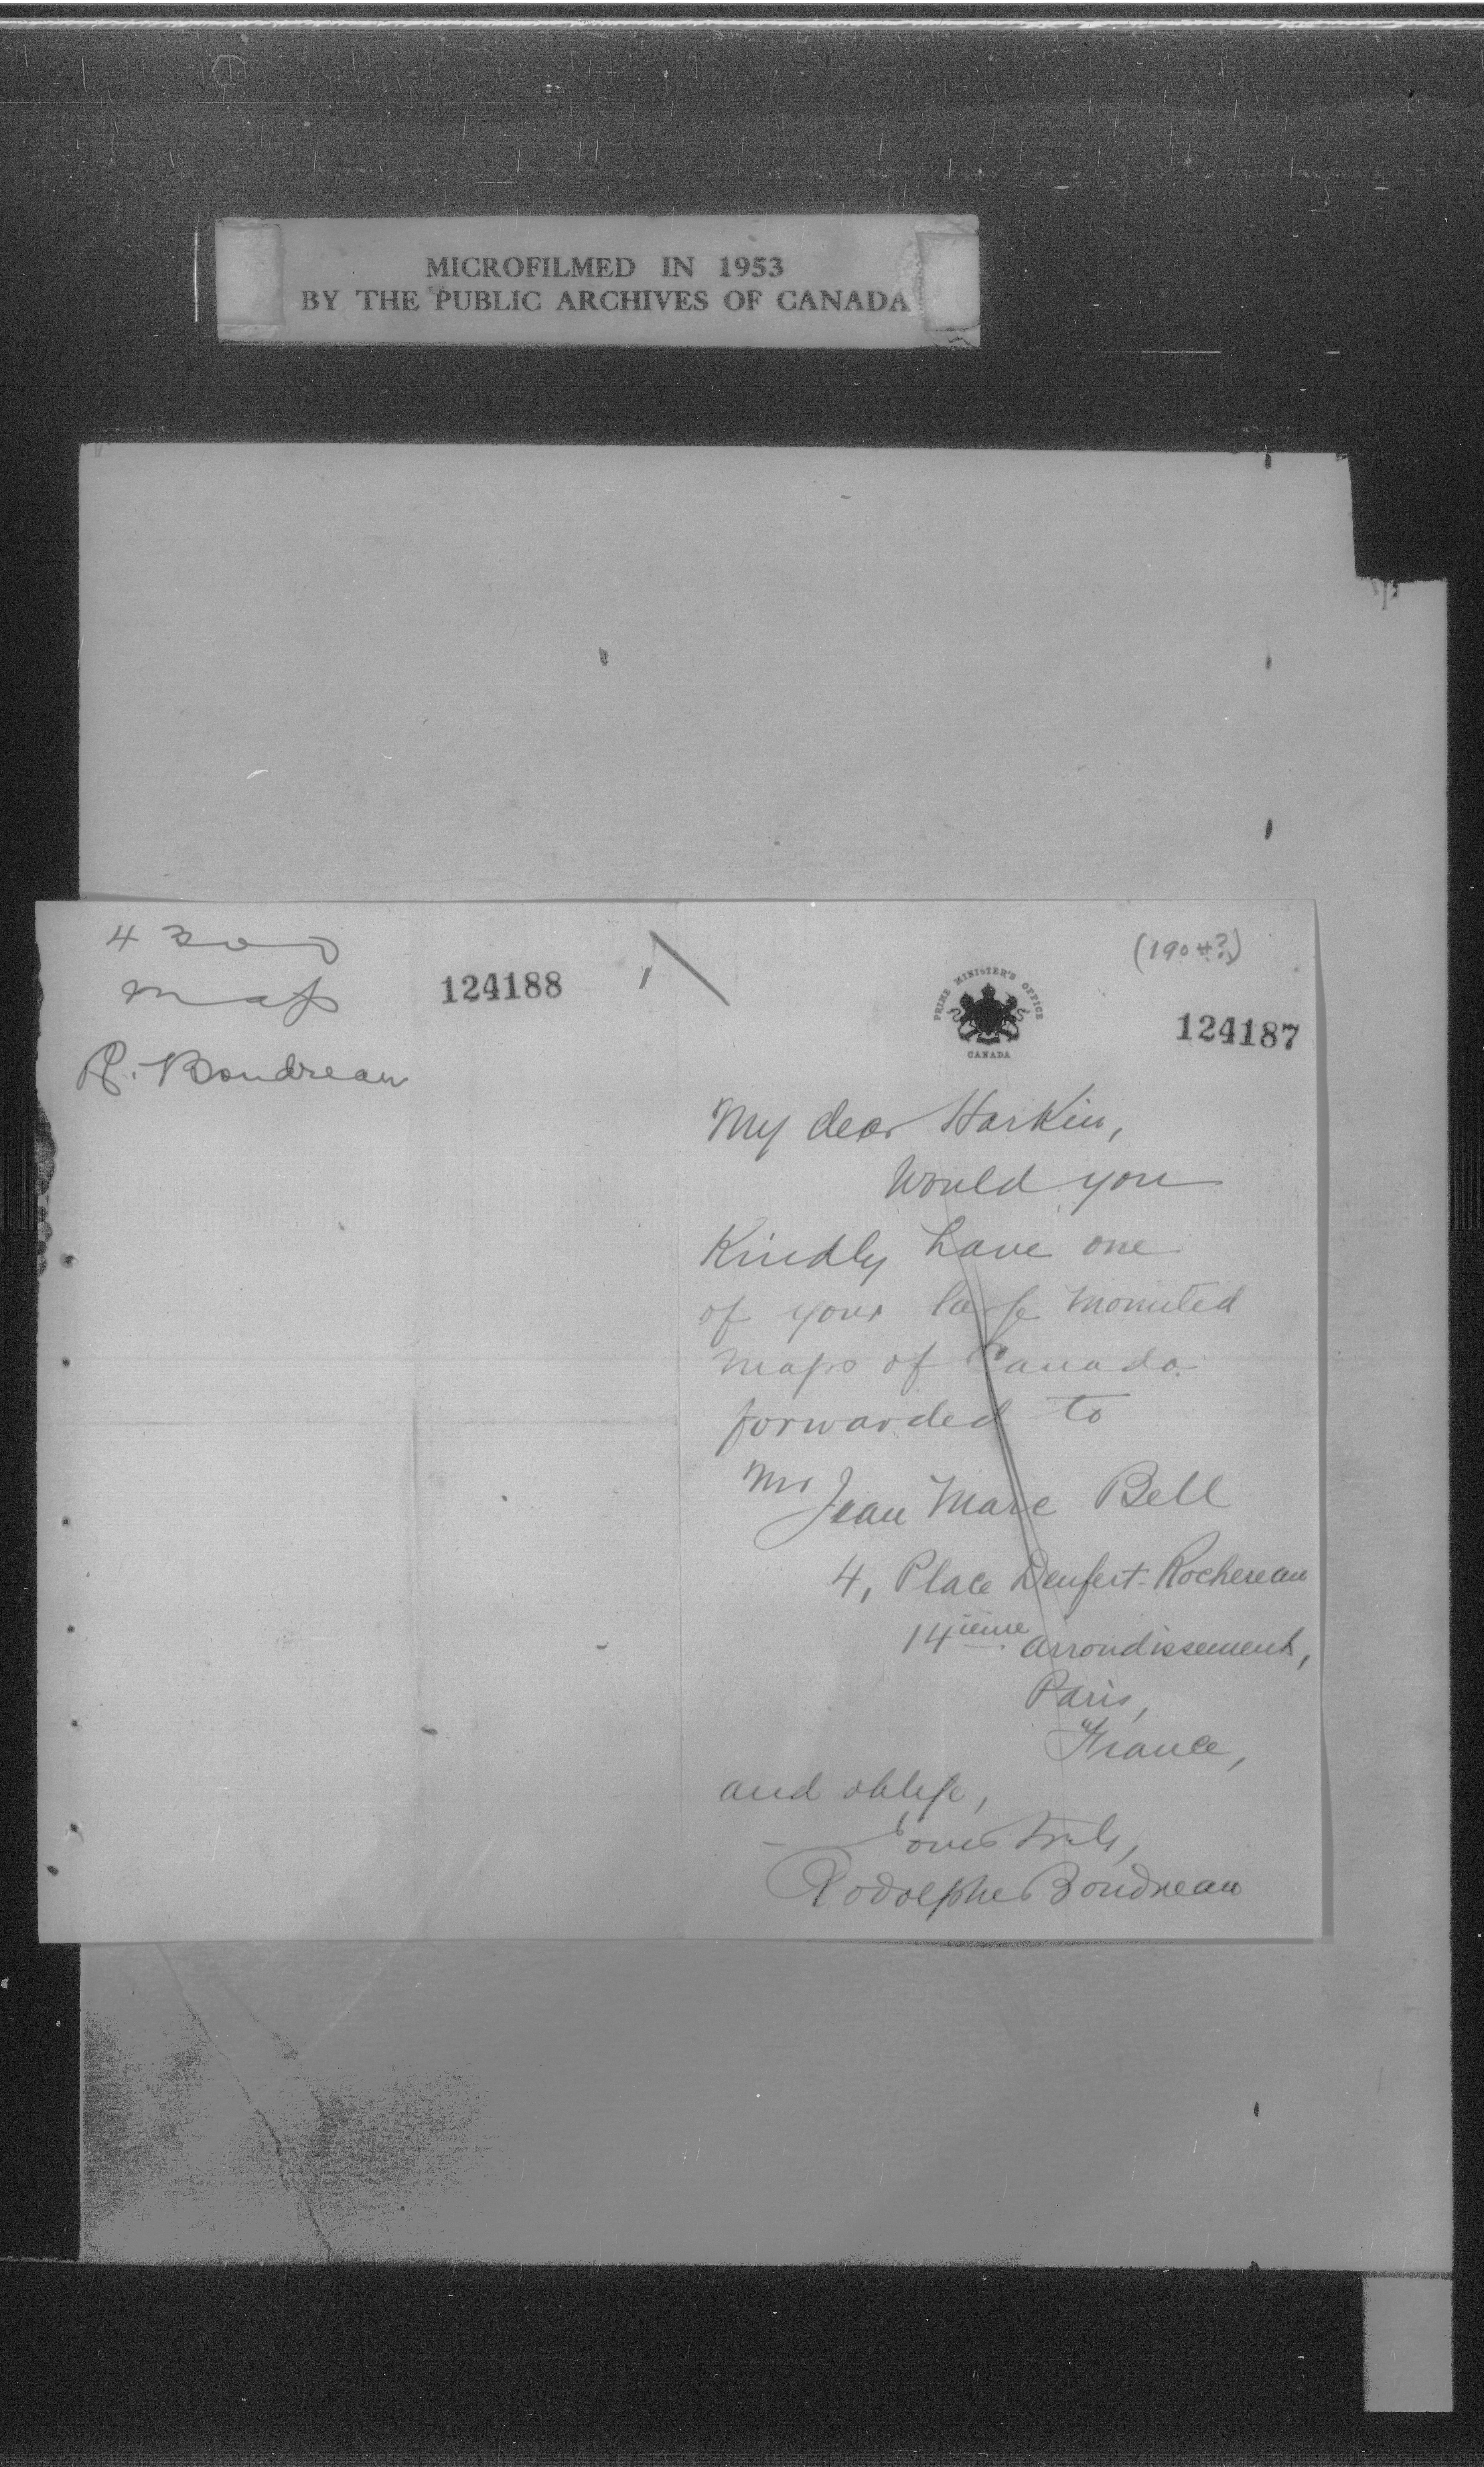 MICROFILMED IN 1953
BY THE PUBLIC ARCHIVES OF CANADA
map
R. Boudreau
124188
(1904?)
PRIME MINISTER'S OFFICE
CANADA
124187
My dear Harkin,
Would you
Kindly have one
of your large mounted
maps of Canada
forwarded to
Mr Jean Marc Bell
4, Place Denfert-Rochereau
14ième arrondissement,
Paris,
France,
and oblige,
Yours truly,
Rodolphe Boudreau